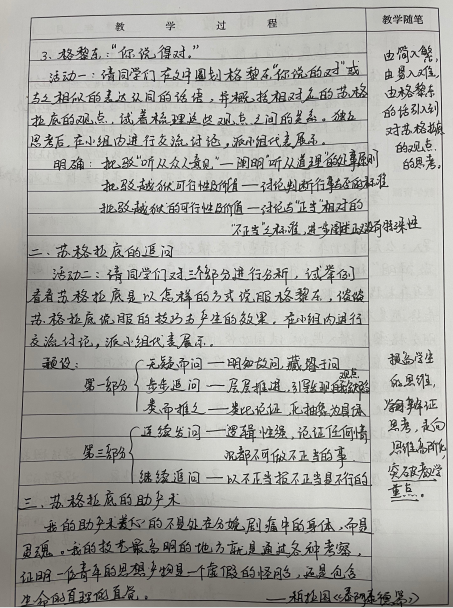 教 学 过 程
教学随笔
3、格黎东："你说得对。"
活动一：请同学们在文中圈划格黎东"你说的对"或
与之相似的表达认同的话语，并概括相对应的苏格
拉底的观点，试着梳理这些观点之间的关系。独立
思考后，在小组内进行交流讨论，派小组代表展示。
明确：批驳"听从众人意见"—阐明"听从道理"的处事原则
批驳越狱可行性及价值—讨论判断行事与否的标准
批驳越狱的可行性及价值—讨论与"正当"相对的
"不正当"之标准，进一步阐述
由简入繁，
由易入难，
由格黎东
的话引入到
对苏格拉底
的观点
的思考。
二、苏格拉底的追问
活动二：请同学们对三个部分进行分析，试举例
看看苏格拉底是以怎样的方式说服格黎东，谈谈
苏格拉底说服的技巧与产生的效果。在小组内进行
交流讨论，派小组代表展示。
预设：
第一部分
无疑而问——明知故问，藏答于问
步步追问——层层推进，引导发现观点
类而推之——类比论证，化抽象为具体
第三部分
连续发问——逻辑性强，论证任何情
况都不可做不正当的事
继续追问——以不正当报不正当是不行的
提高学生
的思维，
思考，走向
思维高阶化，
突破教学
重点。
三、苏格拉底的助产术
我的助产术关心的不是处在分娩剧痛中的身体，而是
灵魂。我的技艺最高明的地方就是通过各种考察，
证明一位青年的思想产物是一个虚假的怪胎，还是包含
生命和真理的直觉。 ——柏拉图《泰阿泰德篇》